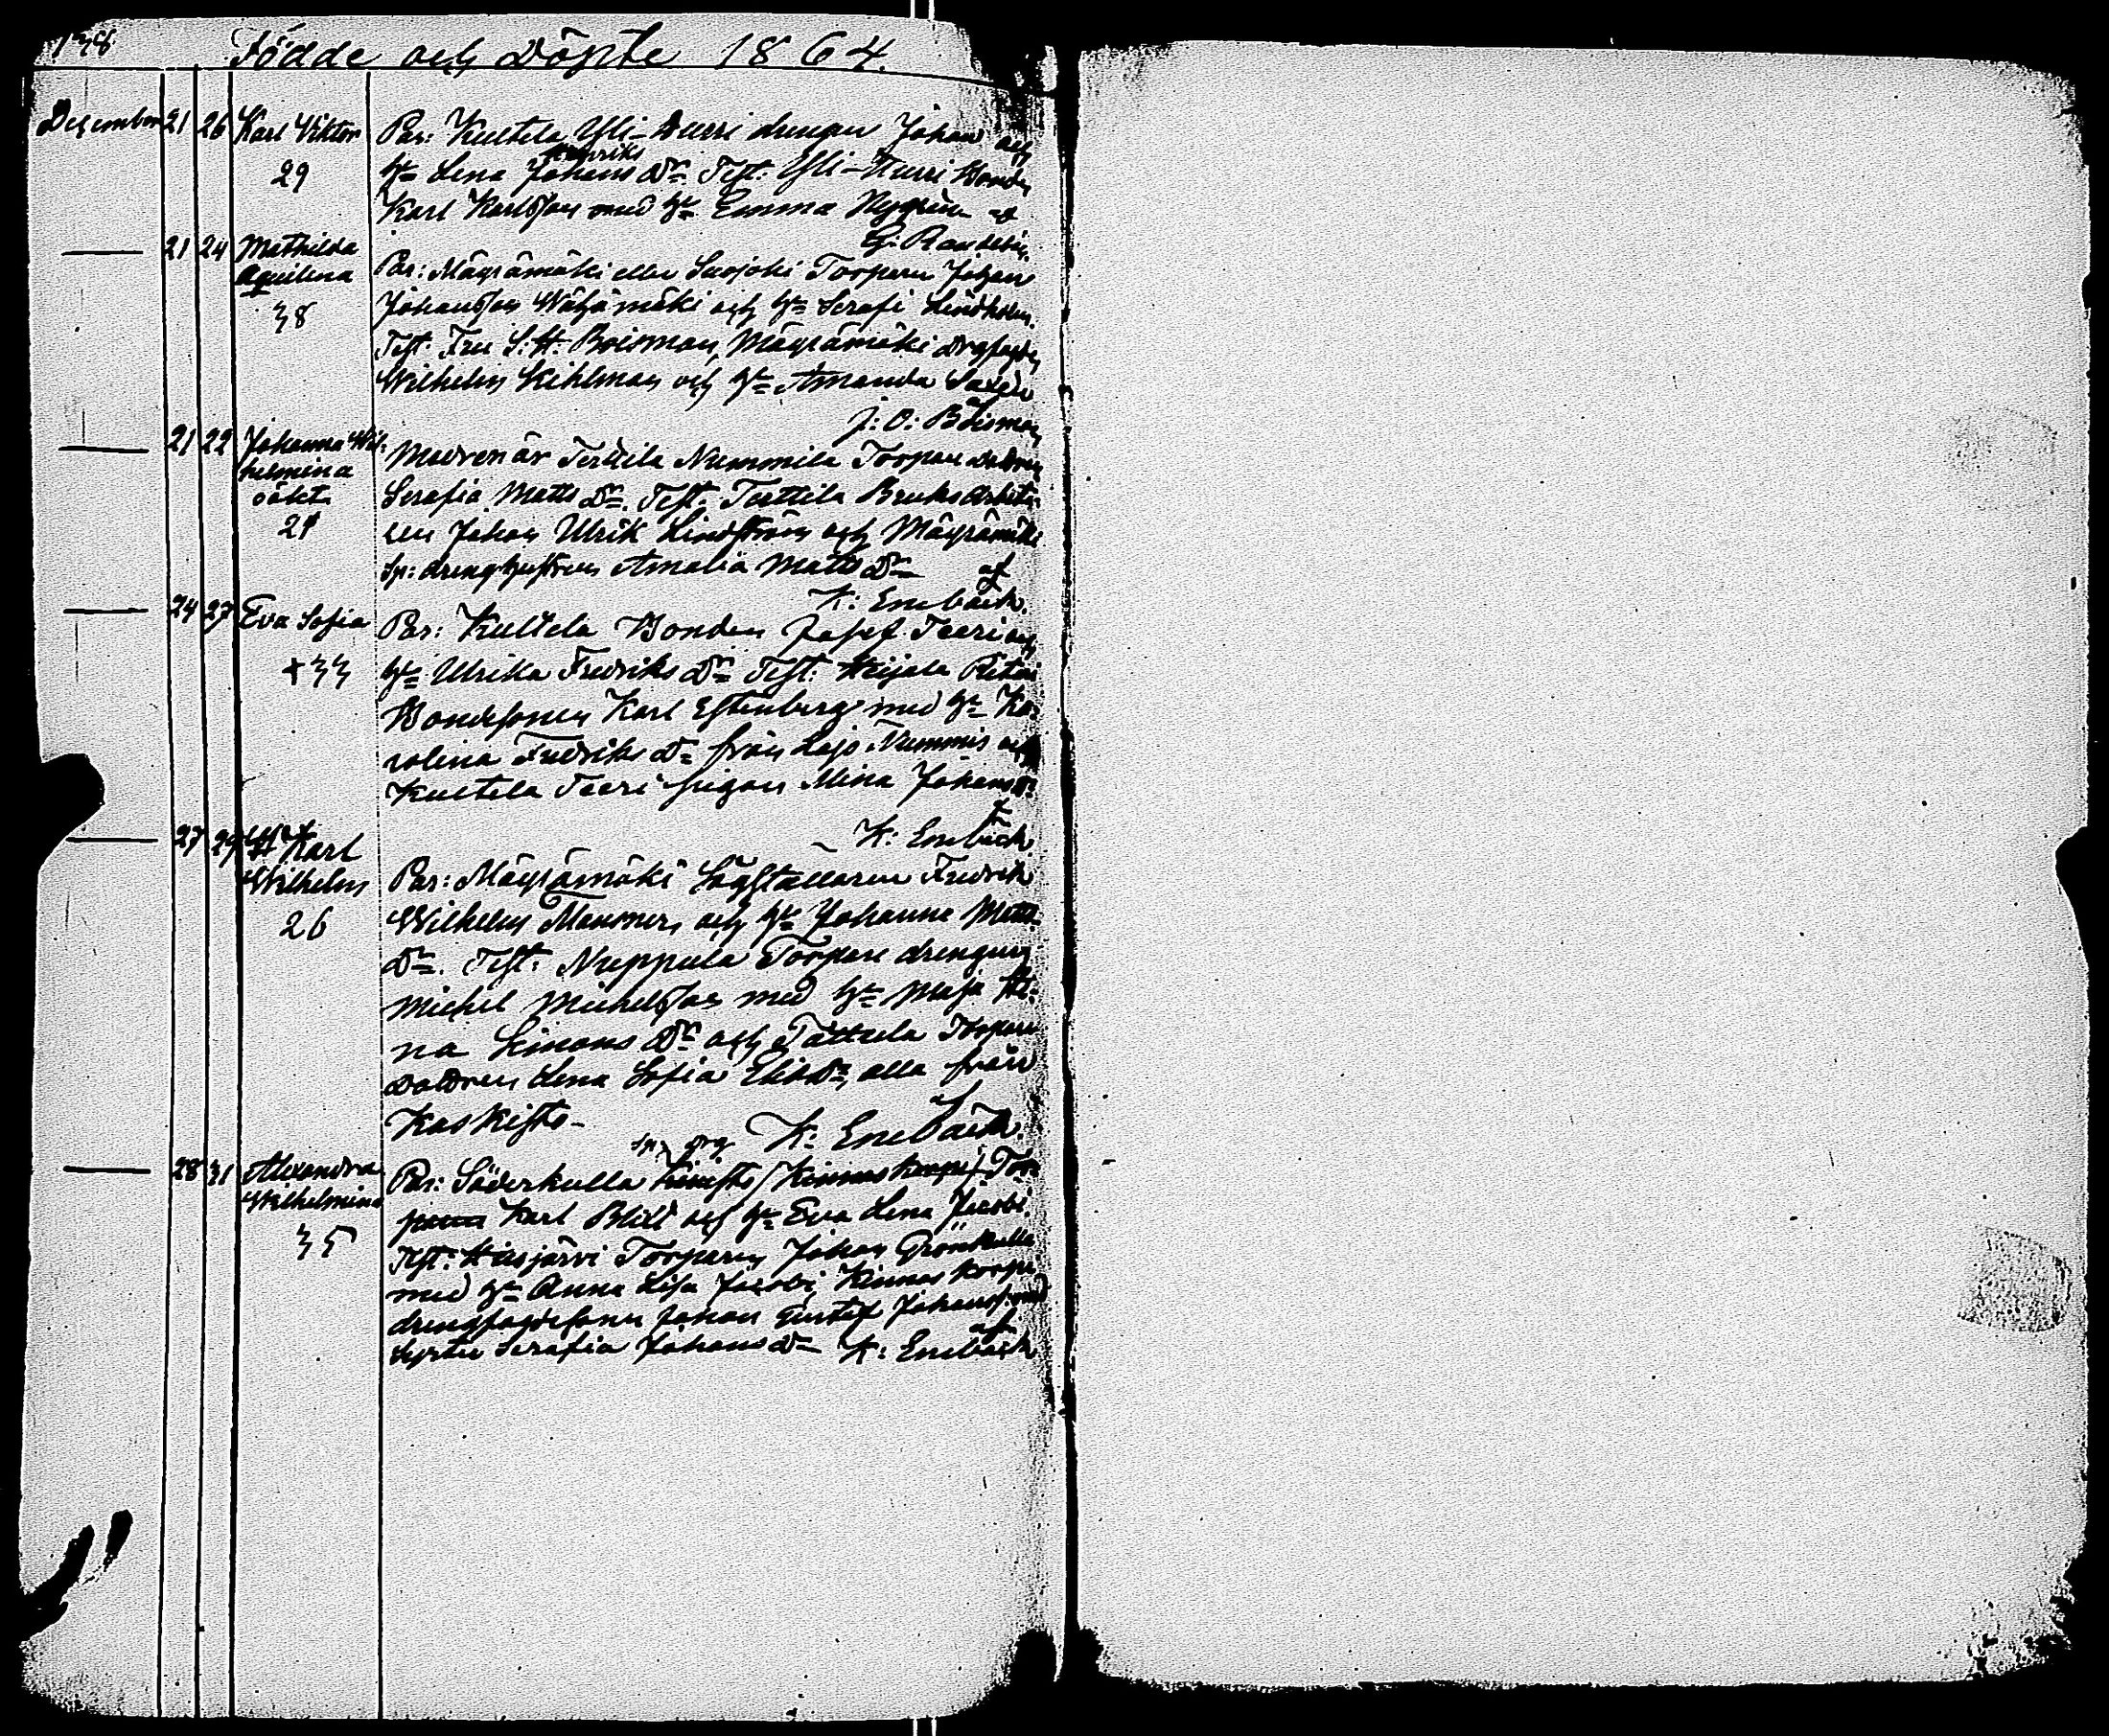 138 Födde och Döpte 1864.
December 21 26 Karl Viktor Par: Kuttila Yli- drengen Johan och
29 h:u Lena Henriks Johans Dr. Test: Yli- Bonden
Karl Karlsson med h:u Emma Nygrén af
G: Randelin.
21 24 Mathilda Par: Mäyrämäki eller Suojoki Torparen Johan
Aquilina Johansson Wähämäki och h:u Serafi Lindholm.
38 Test. Fru S: H: Boisman, Mäyrämäki
Wilhelm Kihlman och h:u Amanda Saxén
af
J: O: Boisman
21 22 Johanna Wil- Modren är Terttilä Nummila Torpare dottren
helmina Serafia Matts Dr. Test. Terttilä Bruks arbeta-
oäkt. ren Johan Ulrik Lindström och Mäyrämäki
24 Sp: drenghustrun Amalia Matts Dr af
K: Enebäck.
24 27 Eva Sofia Par: Kuttila Bonden Josef Teeri och
+33 h:u Ulrika Fredriks Dr Test: Heijala
Bondesonen Karl Estenberg med h:u Ka-
rolina Fredriks Dr från Lojo Nummis och
Kuttila Teeri pigan Mina Johans Dr
af
K: Enebäck.
27 29 Karl
Wilhelm Par: Mäyrämäki Sågställaren Fredrik
26 Wilhelm och h:u Johanna Matts
Dr. Test: Nuppula Torpare drengen
Michel Michelsson med h:u Maja He-
na Simons Dr och Tättälä Torpare
dottren Lena Sofia Elis Dr, alla från
Kaskisto.
af
K: Enebäck.
sp: drg
28 31 Alexandra Par: Söderkulla (Kinnas korpi) Tor-
Wilhelmina paren Karl Blill och h:u Eva Lena Jacobi.
35 Test: Hiisjärvi Torparen Johan Grönkulla
med h:u Anna Lisa Jacobi, Kinnas korpi
drengfogdesonen Johan Gustaf Johanss: med
Syster Serafia Johans Dr af
K: Enebäck